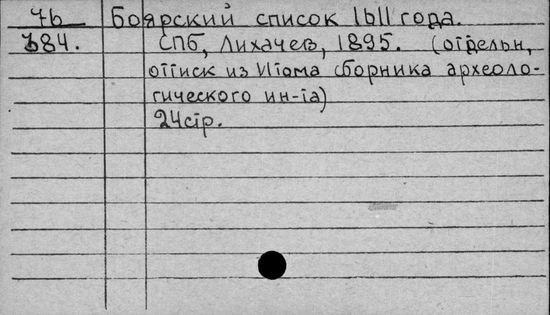 7б Боярский список 1611 года.
784. СПб, Лихачев, 1895. (отдельн,
оттиск из VI тома сборника археоло-
гического ин-та)
24 стр.